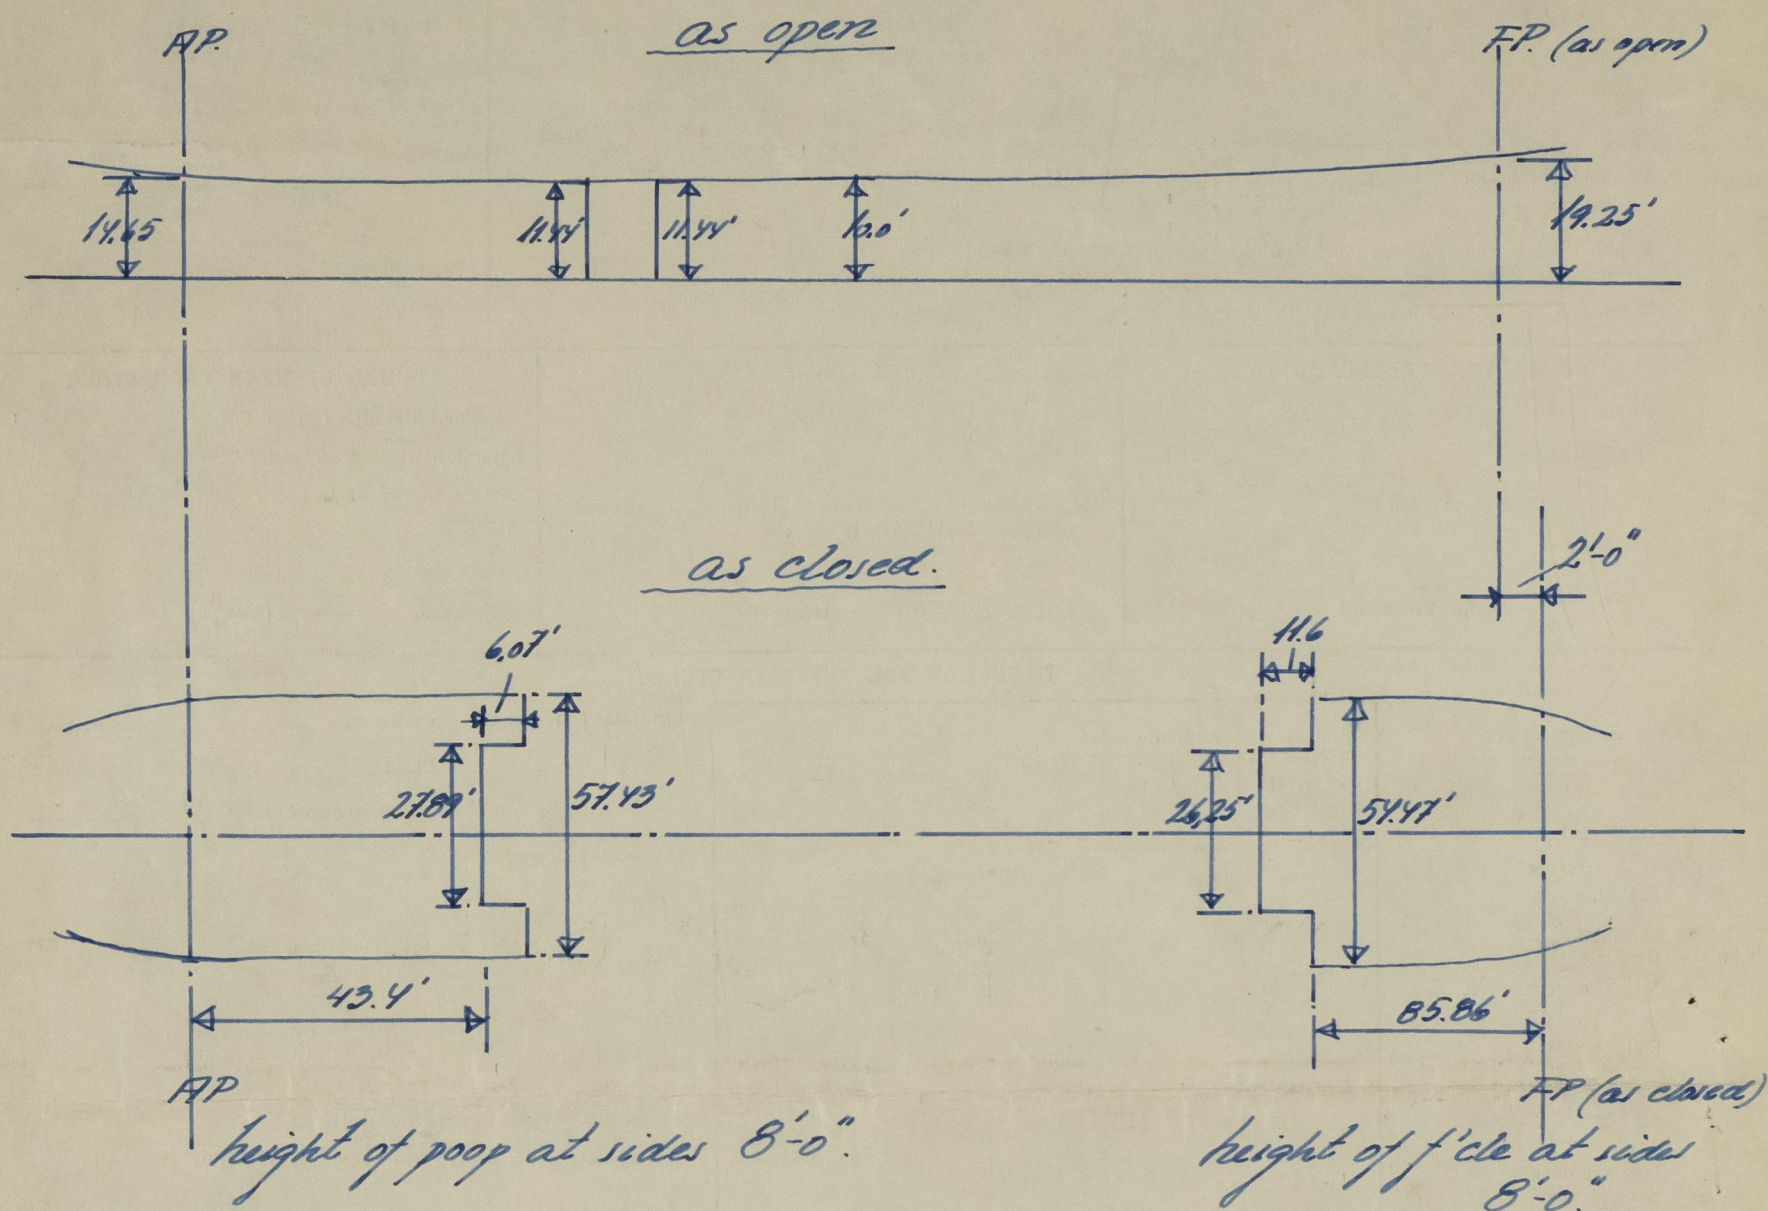 as open
AP.
FP. (as open)
14.65
11.44'
11.44'
10.0'
19.25'
as closed.
2'-0"
6.07'
11.6
27.89'
57.43'
26,25'
54.47'
43.4'
85.86'
AP
FP (as closed)
height of poop at sides 8'-0".
height of f'cle at sides
8'-0".